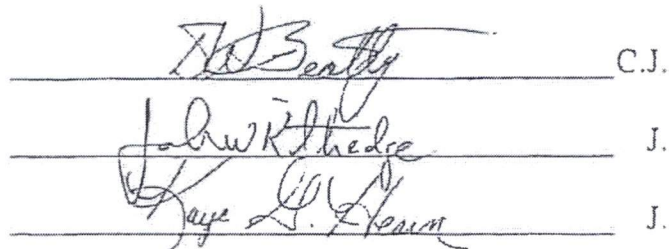 Beatty C.J.
John W Kittredge J.
Kaye G. Hearn J.